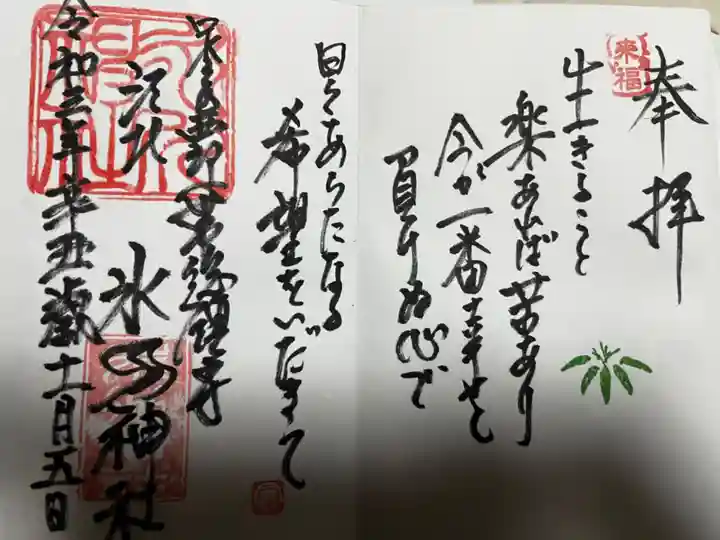 奉拝
来福
生きること
楽あれば苦あり
今が一番幸せと
負けぬ心で
日々あらたなる
希望をいだきて
江北
氷川神社
令和三年辛丑歳十一月五日